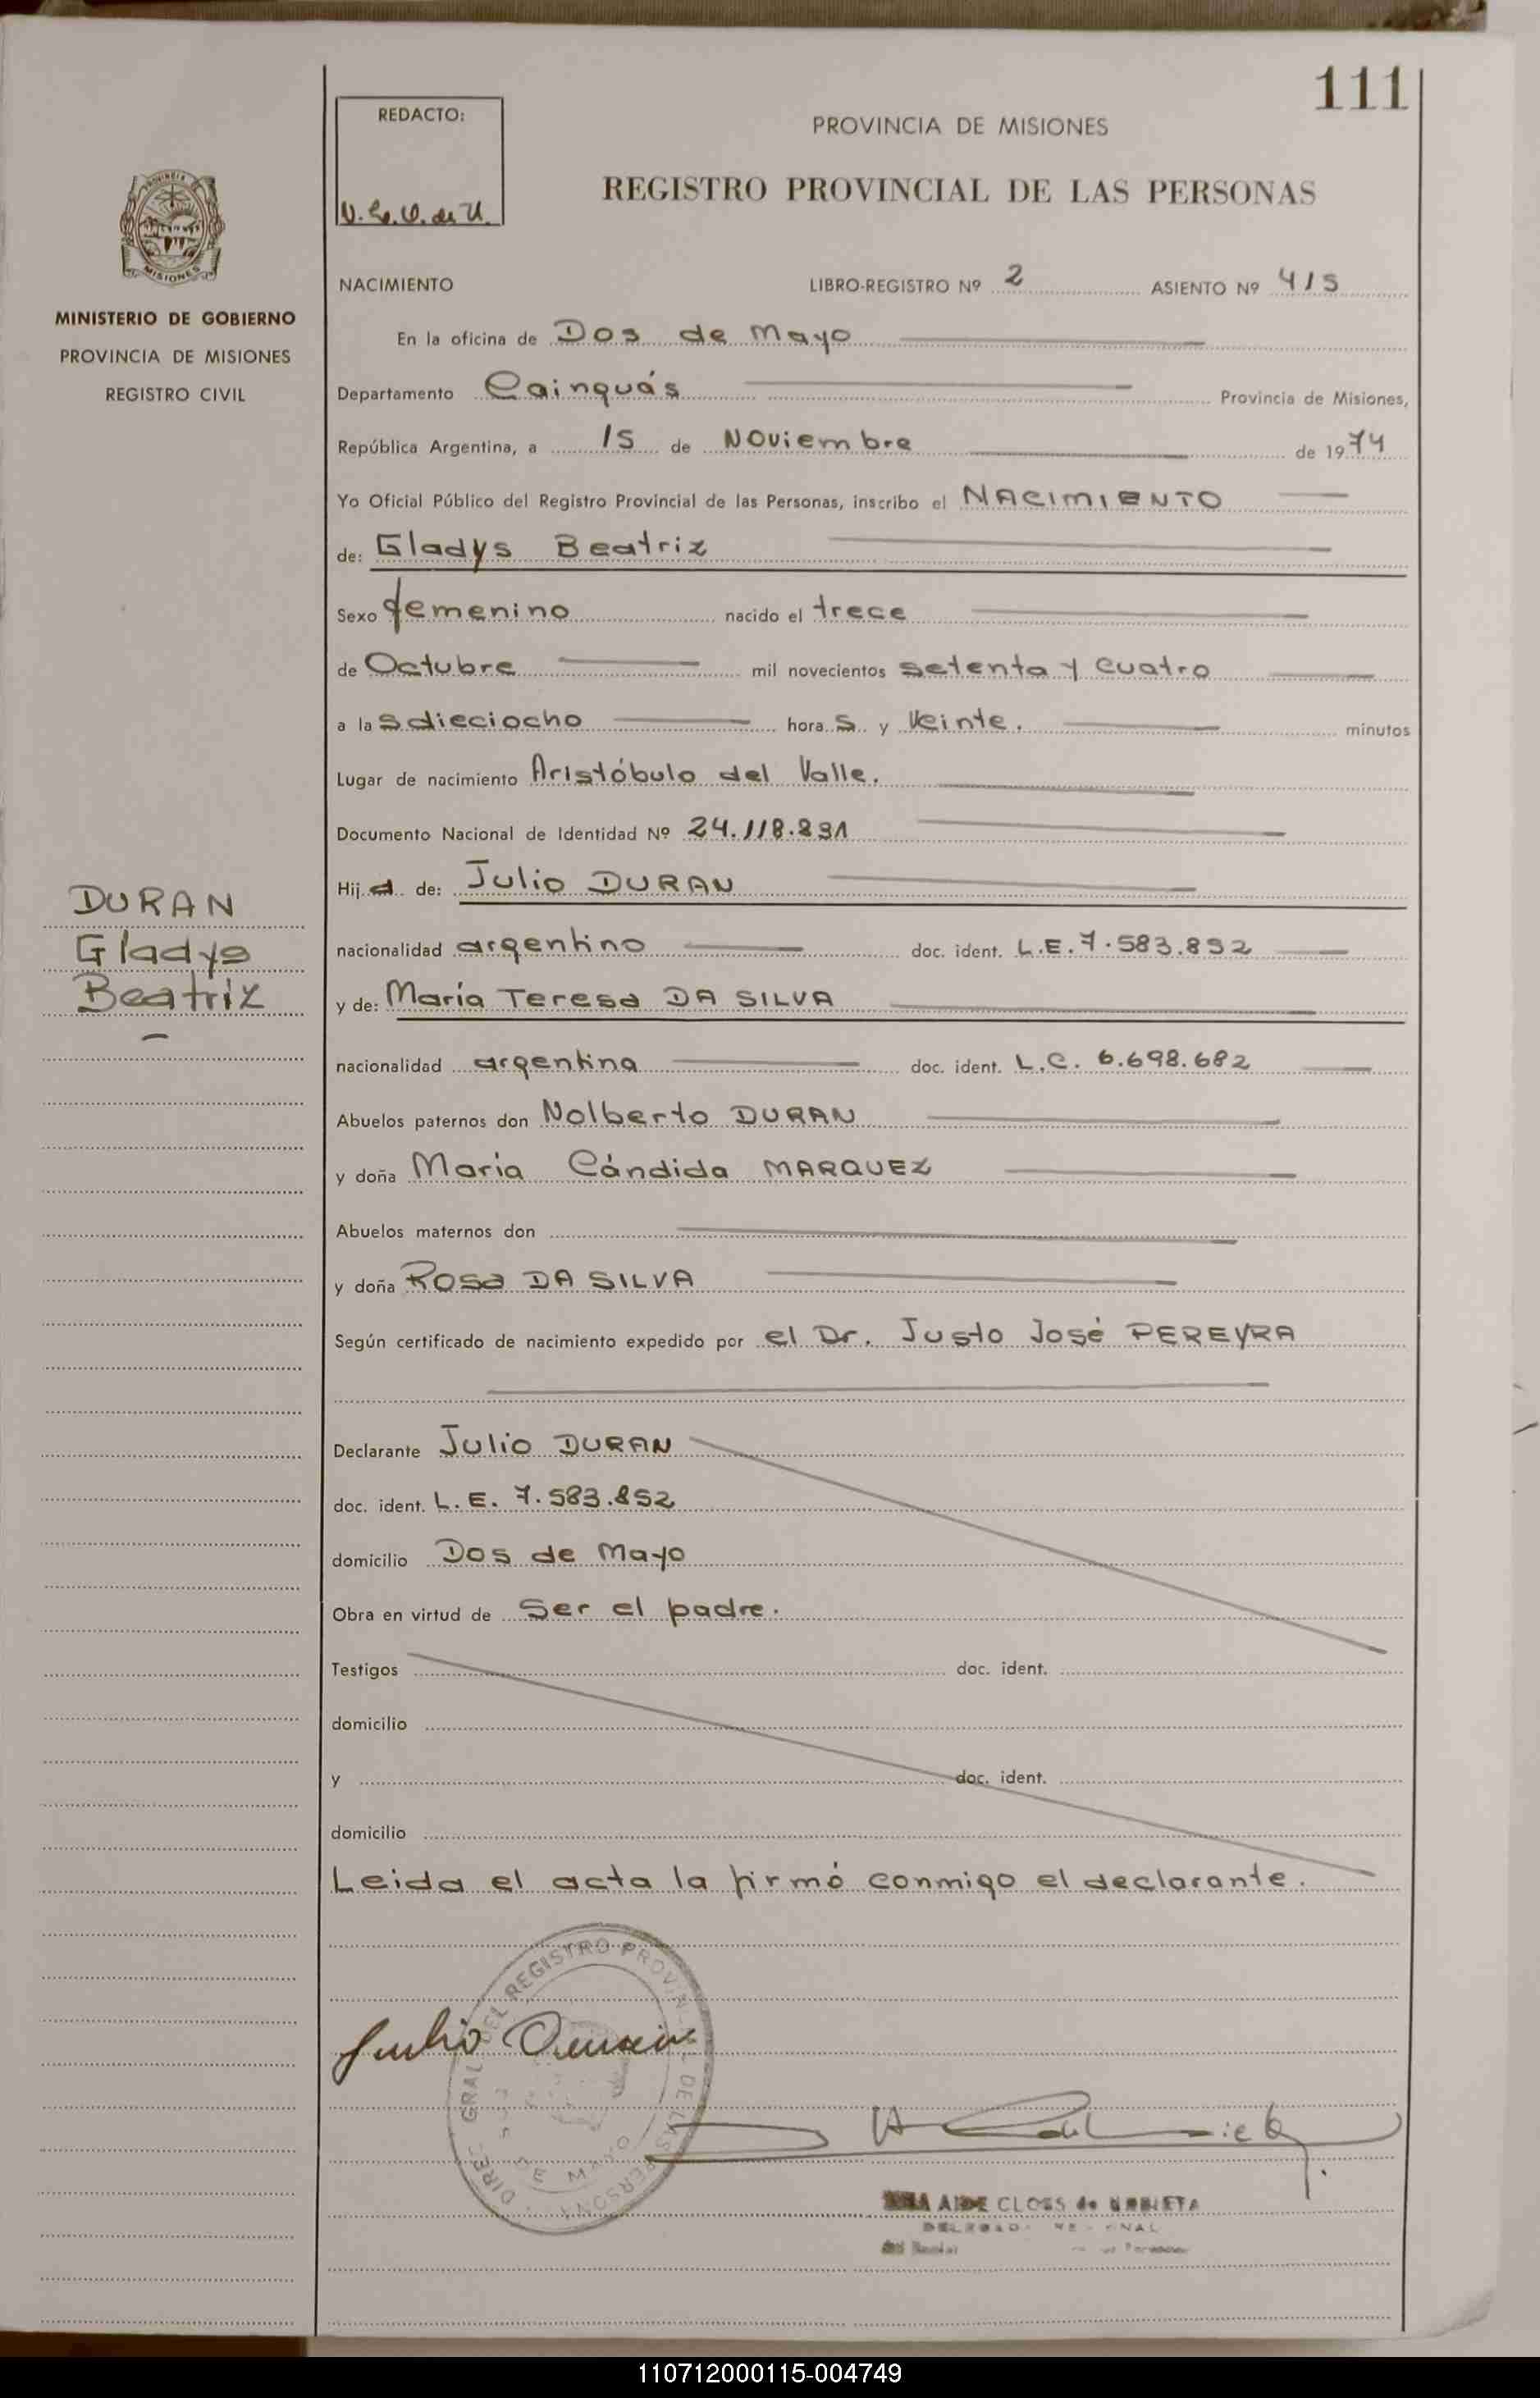 111
REDACTO:
PROVINCIA DE MISIONES
REGISTRO PROVINCIAL DE LAS PERSONAS
PROVINCIA
MISIONES
MINISTERIO DE GOBIERNO
PROVINCIA DE MISIONES
REGISTRO CIVIL
NACIMIENTO LIBRO-REGISTRO Nº 2 ASIENTO Nº 415
En la oficina de Dos de Mayo
Departamento Cainguás Provincia de Misiones,
República Argentina, a 15 de Noviembre de 1974
Yo Oficial Público del Registro Provincial de las Personas, inscribo el NACIMIENTO
de: Gladys Beatriz
Sexo femenino nacido el trece
de Octubre mil novecientos setenta y cuatro
a las dieciocho horas y veinte. minutos
Lugar de nacimiento Aristóbulo del Valle.
Documento Nacional de Identidad Nº 24.118.231
Hija de: Julio DURAN
DURAN
Gladys
Beatriz
nacionalidad argentino doc. ident. L.E. 7.583.852
y de: María Teresa DA SILVA
nacionalidad argentina doc. ident. L.C. 6.698.682
Abuelos paternos don Nolberto DURAN
y doña María Cándida MARQUEZ
Abuelos maternos don
y doña Rosa DA SILVA
Según certificado de nacimiento expedido por el Dr. Justo José PEREYRA
Declarante Julio DURAN
doc. ident. L. E. 7.583.852
domicilio Dos de Mayo
Obra en virtud de Ser el padre.
Testigos doc. ident.
domicilio
y doc. ident.
domicilio
Leida el acta la firmó conmigo el declarante.
DIREC. GRAL. DEL REGISTRO PROVINCIAL DE LAS PERSONAS
DOS DE MAYO
Julio Duran
AIDE CLOSS de URRIETA
110712000115-004749